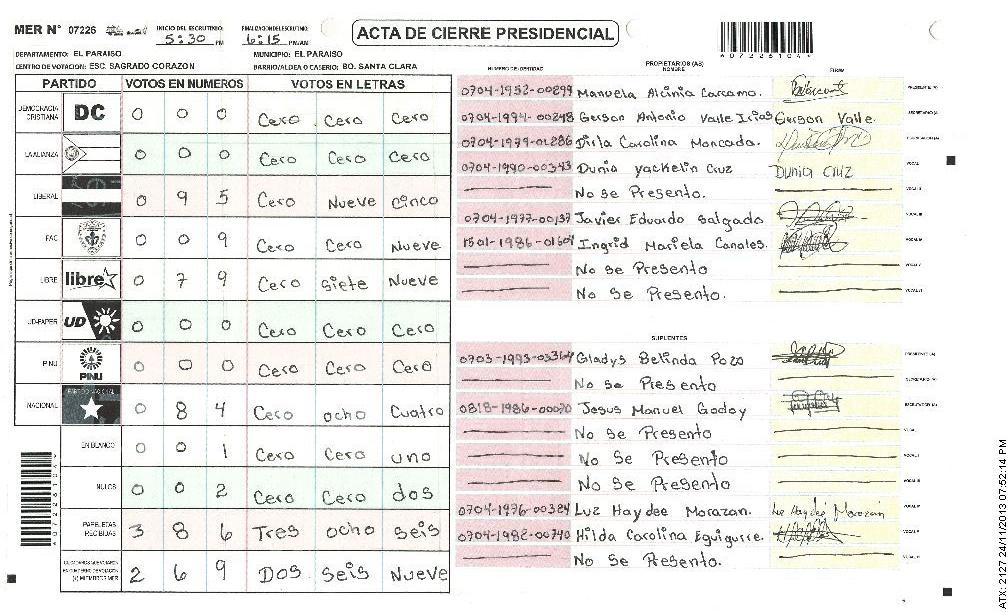 MER N° 07226 INICIO DEL ESCRUTINIO: 5:30 PM FINALIZACION ESCRUTINIO: 6:15 PM/AM
ACTA DE CIERRE PRESIDENCIAL
DEPARTAMENTO: EL PARAISO MUNICIPIO: EL PARAISO
CENTRO DE VOTACION: ESC. SAGRADO CORAZON BARRIO/ALDEA O CASERIO: BO. SANTA CLARA
PARTIDO VOTOS EN NUMEROS VOTOS EN LETRAS
DEMOCRACIA CRISTIANA DC 0 0 0 Cero Cero Cero
LA ALIANZA 0 0 0 Cero Cero Cero
LIBERAL 0 9 5 Cero Nueve Cinco
FAC 0 0 9 Cero Cero Nueve
LIBRE libre 0 7 9 Cero Siete Nueve
UD-FAPER UD 0 0 0 Cero Cero Cero
PINU PINU 0 0 0 Cero Cero Cero
NACIONAL PARTIDO NACIONAL 0 8 4 Cero ocho Cuatro
EN BLANCO 0 0 1 Cero Cero uno
NULOS 0 0 2 Cero Cero dos
PAPELETAS RECIBIDAS 3 8 6 Tres ocho seis
2 6 9 DOS Seis Nueve
NUMERO DE IDENTIDAD PROPIETARIOS (AS) NOMBRE FIRMA
0704-1952-00299 Manuela Alcinia Carcamo. PRESIDENTE (A)
0704-1994-00248 Gerson Antonio Valle Irias Gerson Valle. SECRETARIO (A)
0704-1979-01286 Dirla Carolina Moncada. ESCRUTADOR (A)
0704-1990-00343 Dunia yackelin Cruz DUNIA CRUZ VOCAL I
No se Presento. VOCAL II
0704-1977-00137 Javier Eduardo Salgado VOCAL III
1501-1986-01604 Ingrid Mariela Canales. VOCAL IV
No se Presento VOCAL V
No se Presento. VOCAL VI
SUPLENTES
0703-1993-03364 Gladys Belinda Pozo PRESIDENTE (A)
No se Presento SECRETARIO (A)
0818-1986-00070 Jesus Manuel Godoy ESCRUTADOR (A)
No Se Presento VOCAL I
No Se Presento VOCAL II
No Se Presento VOCAL III
0704-1976-00384 Luz Haydee Morazan. Luz Haydee Morazan VOCAL IV
0704-1982-00740 Hilda Carolina Eguigurre. VOCAL V
No se Presento. VOCAL VI
ATX: 2127 24/11/2013 07:52:14 PM